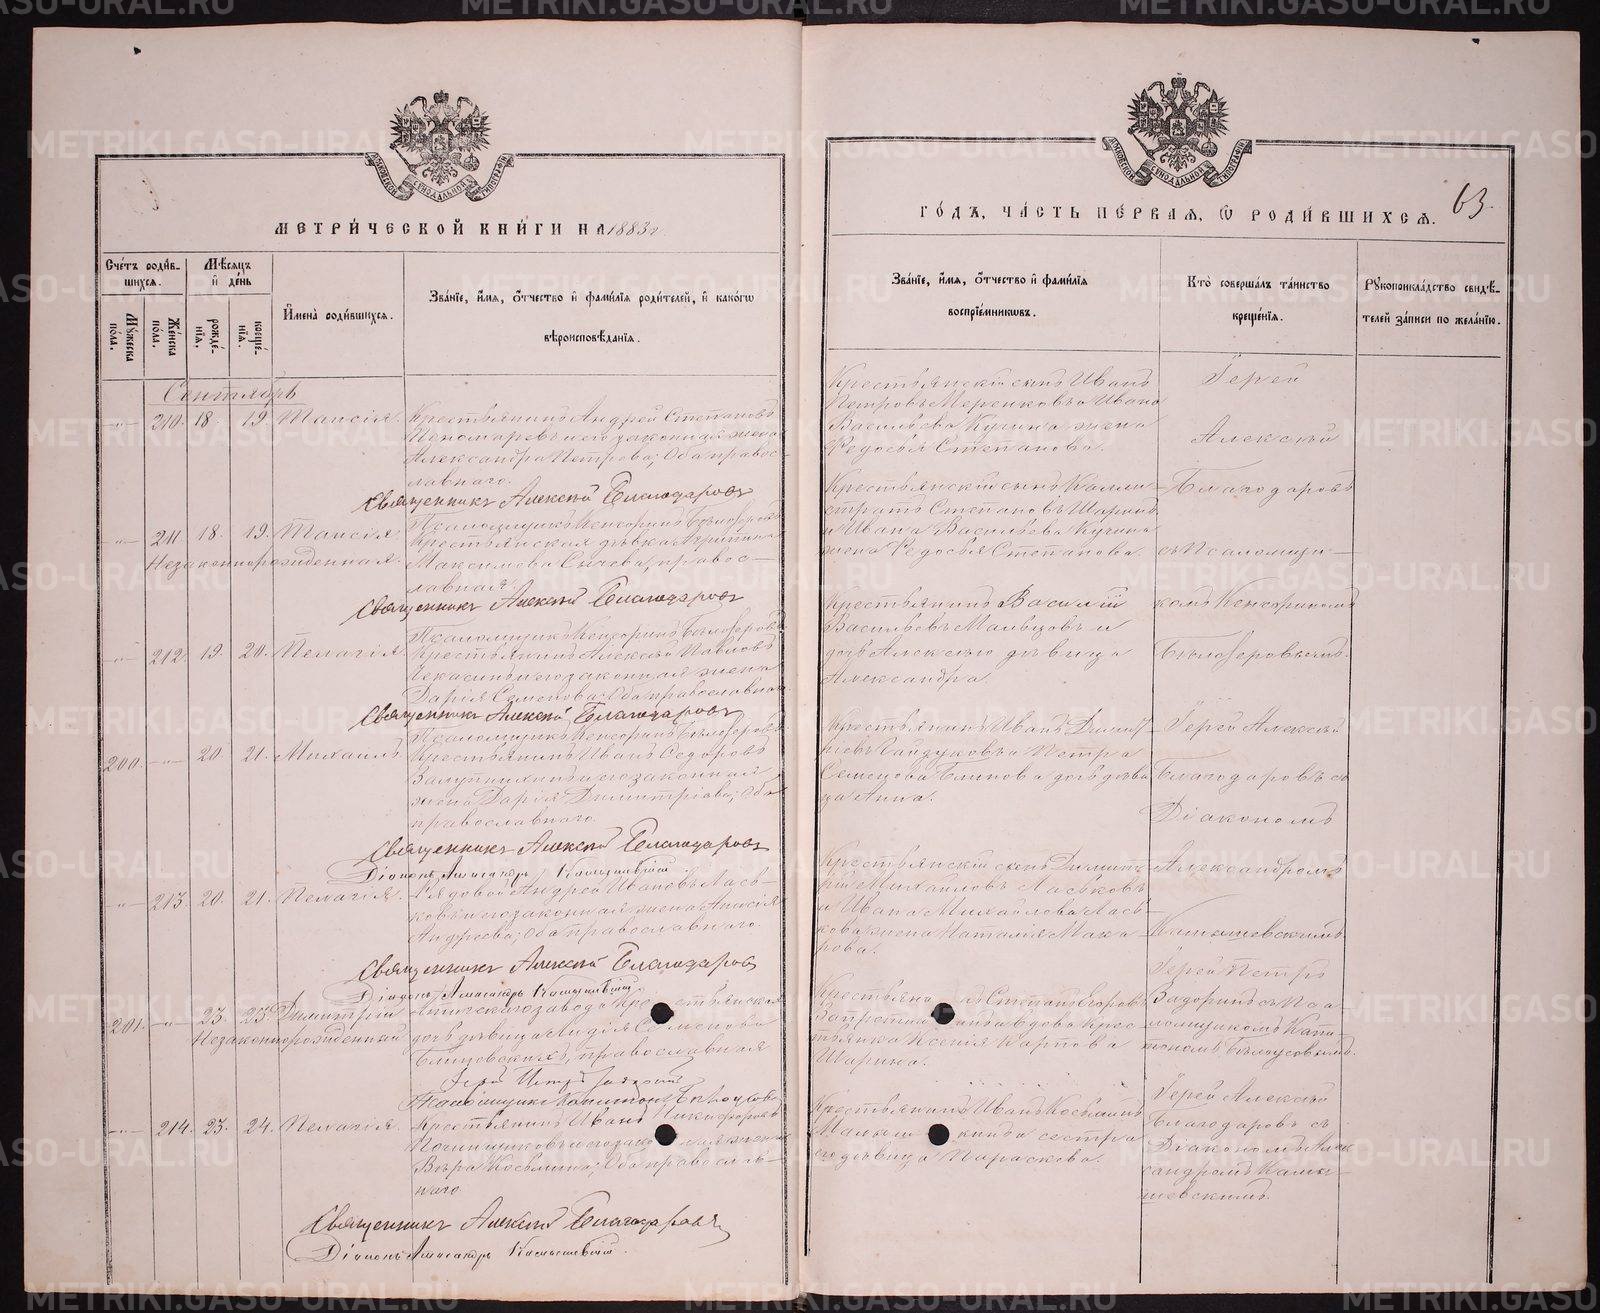 МЕТРИ́ЧЕСКОЙ КНИ́ГИ НА 1883 г.
Сче́тъ роди́в-
шихся.
Мѣсяцъ
и́ де́нь
Му́жеска
по́ла.
Же́нска
по́ла.
рожде́-
нія.
креще́-
нія.
И҆мена̀ роди́вшихся.
Зва́ніе, и҆́мя, о҆́тчество и҆ фами́лія роди́телей, и҆ како́гѡ
вѣроисповѣ́данія.
Сентябрь
210. 18. 19. Таисія.
Крестьянинъ Андрей Степановъ
Пономаревъ и его законная жена
Александра Петрова; Оба правос-
лавнаго.
Священникъ Алексѣй Благодаровъ
Псаломщикъ Кенсоринъ Бѣлозеровъ
211. 18. 19. Таисія.
Незаконнорожденная.
Крестьянская дѣвка
Максимова, правос-
лавная.
Священникъ Алексѣй Благодаровъ
Псаломщикъ Кенсоринъ Бѣлозеровъ
212. 19. 20. Пелагія.
Крестьянинъ Алексѣй Павловъ
и его законная жена
Дарія Семенова; Оба православнаго
Священникъ Алексѣй Благодаровъ
Псаломщикъ Кенсоринъ Бѣлозеровъ
200. 20. 21. Михаилъ
Крестьянинъ Иванъ Ѳедоровъ
и его законная
жена Дарія Димитріева; Оба
православнаго.
Священникъ Алексѣй Благодаровъ
Діаконъ Александръ Камышевскій
213. 20. 21. Пелагія.
Рядовой Андрей Ивановъ Лась-
ковъ и его законная жена Анасія
Андреева; Оба православнаго.
Священникъ Алексѣй Благодаровъ
Діаконъ Александръ Камышевскій
201. 23. 25. Димитрій
Незаконнорожденный
завода крестьянская
дочь дѣвица Лидія Семенова
православная
Іерей Петръ Задоринъ
Псаломщикъ Капитонъ Бѣлоусовъ
214. 23. 24. Пелагія.
Крестьянинъ Иванъ Никифоровъ
и его законная жена
Вѣра Косьмина; Оба православ-
наго.
Священникъ Алексѣй Благодаровъ
Діаконъ Александръ Камышевскій.
ГО́ДЪ, ЧА́СТЬ ПЕ́РВАЯ, Ѡ҆ РОДИ́ВШИХСЯ.
63.
Зва́ніе, и҆́мя, о҆́тчество и҆ фами́лія
воспріе́мниковъ.
Кто̀ соверша́лъ та́инство
креще́нія.
Рукоприкла́дство свидѣ́-
телей за́писи по жела́нію.
Крестьянскій сынъ Иванъ
Петровъ Меренковъ и Ивана
Васильева Кучина жена
Ѳедосья Степанова.
Іерей
Алексѣй
Крестьянскій сынъ Калли-
стратъ Степановъ Шаринъ
и Ивана Васильева Кучина
жена Ѳедосья Степанова.
Благодаровъ
съ Псаломщи-
Крестьянинъ Василій
Васильевъ Мальцовъ и
дочь Алексѣю дѣвица
Александра.
комъ Кенсориномъ
Бѣлозеровымъ.
Крестьянинъ Иванъ Димит-
ріевъ Гайдуковъ и Петра
Семенова Блинова дочь дѣви-
ца Анна.
Іерей Алексѣй
Благодаровъ съ
Діакономъ
Крестьянскій сынъ Димит-
рій Михайловъ Ласьковъ
и Ивана Михайлова Лась-
кова жена Наталія Мака-
рова.
Александромъ
Камышевскимъ
Крестьянинъ Степанъ Егоровъ
и вдова крес-
тьянка Ксенія Карпова
Шарина.
Іерей Петръ
Задоринъ съ Пса-
ломщикомъ Капи-
тономъ Бѣлоусовымъ.
Крестьянинъ Иванъ Косьминъ
и сестра
его дѣвица Параскова.
Іерей Алексѣй
Благодаровъ съ
Діакономъ Алек-
сандромъ Камы-
шевскимъ.
METRIKI.GASO-URAL.RU